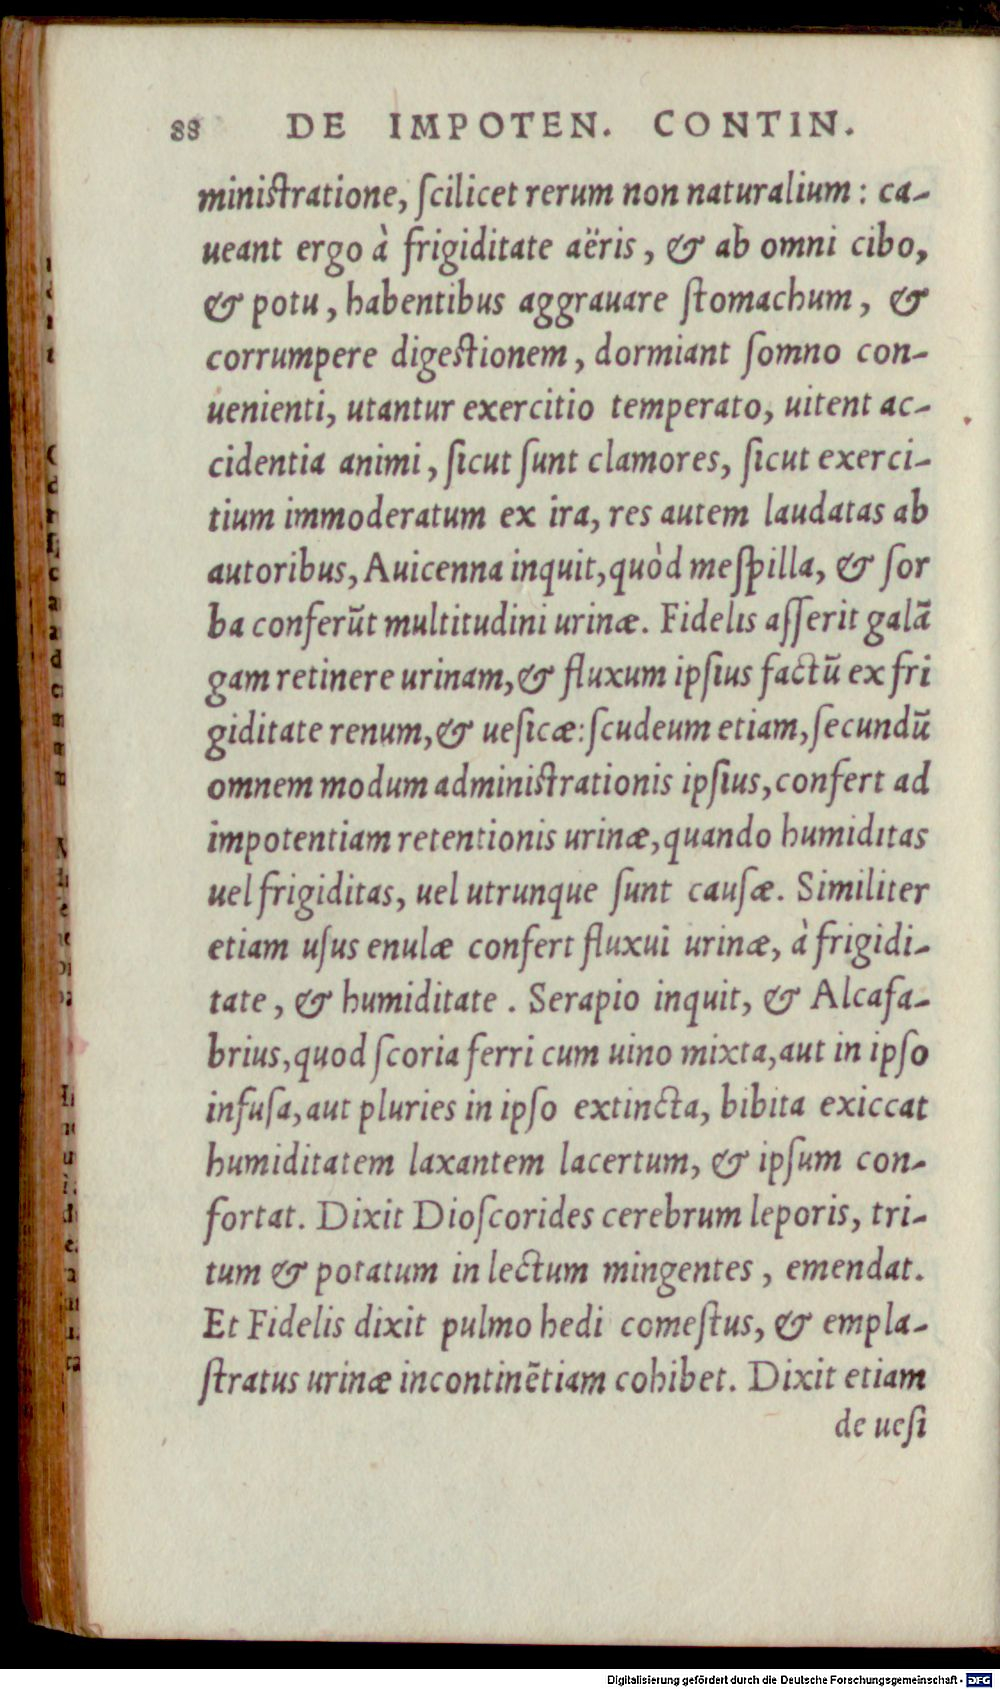 88 DE IMPOTEN. CONTIN.
miniſtratione, ſcilicet rerum non naturalium: ca-
ueant ergo à frigiditate aëris, & ab omni cibo,
& potu, habentibus aggrauare ſtomachum, &
corrumpere digeſtionem, dormiant ſomno con-
uenienti, utantur exercitio temperato, uitent ac-
cidentia animi, ſicut ſunt clamores, ſicut exerci-
tium immoderatum ex ira, res autem laudatas ab
autoribus, Auicenna inquit, quòd meſpilla, & ſor
ba conferūt multitudini urinæ. Fidelis aſſerit galā
gam retinere urinam, & fluxum ipſius factū ex fri
giditate renum, & ueſicæ: ſcudeum etiam, ſecundū
omnem modum adminiſtrationis ipſius, confert ad
impotentiam retentionis urinæ, quando humiditas
uel frigiditas, uel utrunque ſunt cauſæ. Similiter
etiam uſus enulæ confert fluxui urinæ, à frigidi-
tate, & humiditate. Serapio inquit, & Alcafa-
brius, quod ſcoria ferri cum uino mixta, aut in ipſo
infuſa, aut pluries in ipſo extincta, bibita exiccat
humiditatem laxantem lacertum, & ipſum con-
fortat. Dixit Dioſcorides cerebrum leporis, tri-
tum & potatum in lectum mingentes, emendat.
Et Fidelis dixit pulmo hedi comeſtus, & empla-
ſtratus urinæ incontinētiam cohibet. Dixit etiam
de ueſi
Digitalisierung gefördert durch die Deutsche Forschungsgemeinschaft - DFG